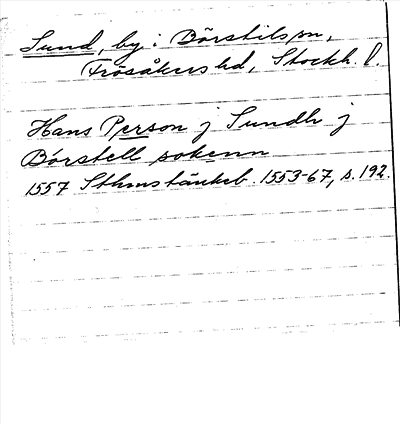 Sund, by i Börstils sn,
Frösåkers hd, Stockh. l.
Hans Person j Sundh j
Börstell sokenn
1557 Sthms tänkeb. 1553-67, s. 192.